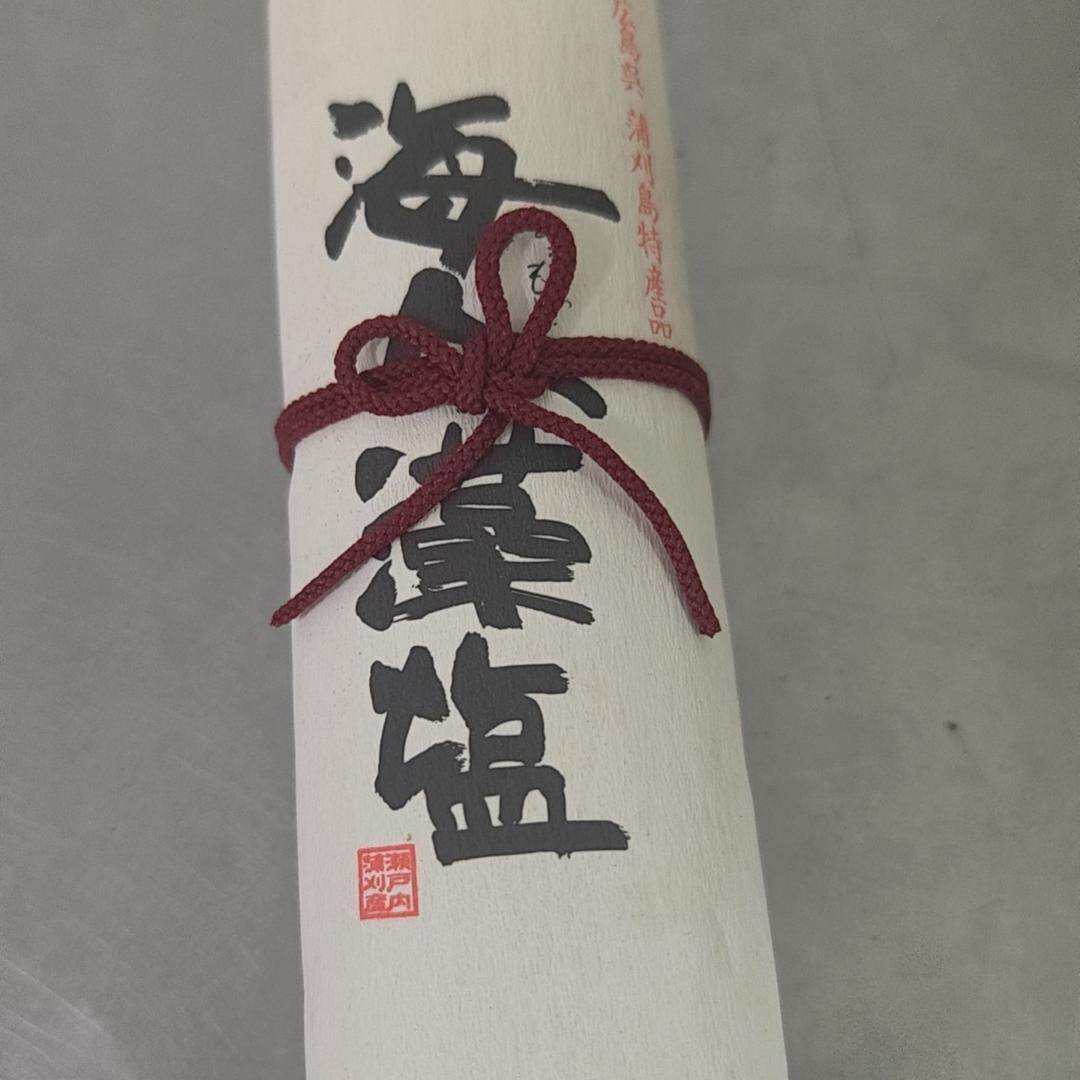 広島県 蒲刈島特産品
海人藻塩
瀬戸内
蒲刈産